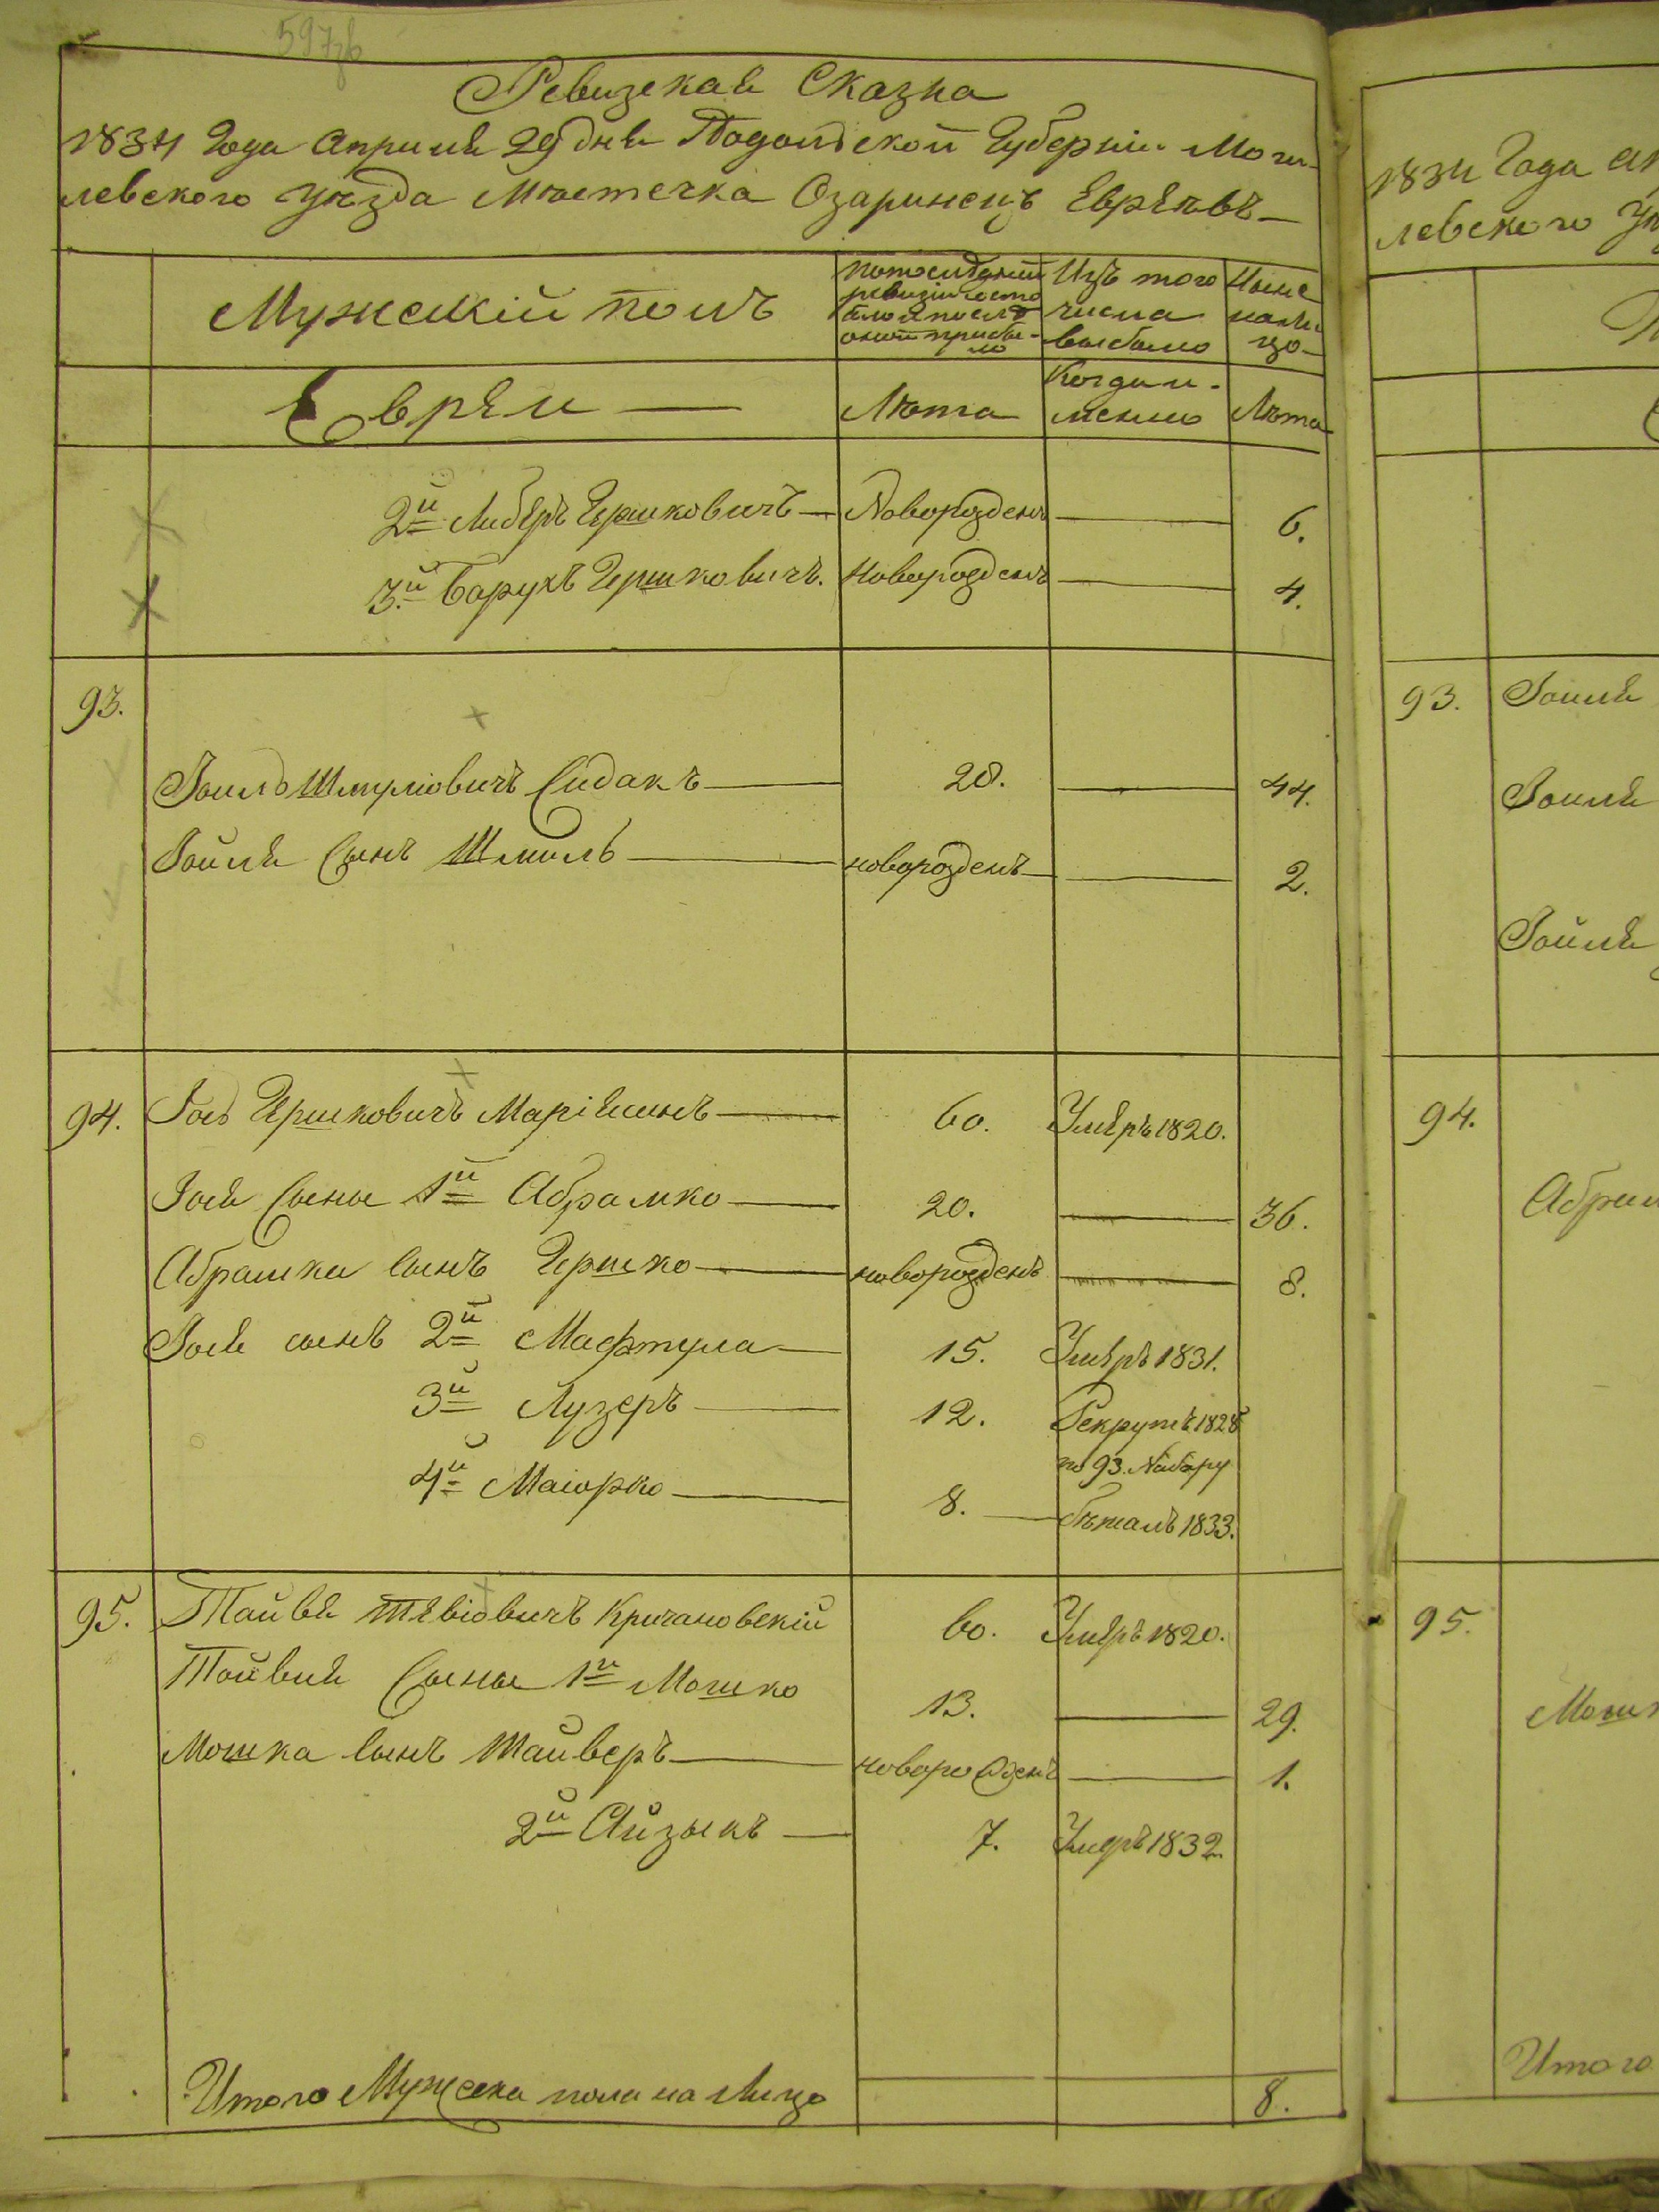 597
Ревизская Сказка
1834 Года Апреля 29 дня Подольской Губернiи Моги-
левского уѣзда Мѣстечка Озаринецъ Евреѣвъ
Мужескiй полъ
по последней
ревизiи состо
яло и послѣ
оной прибы-
ло
Изъ того
числа
выбыло
Ныне
на ли
цо
Еврѣи
Лѣта
Когда и-
менно
Лѣта
2й Либеръ Гершковичъ Новорозденъ 6.
3.й Барухъ Гершковичъ. Новорозденъ 4.
93.
Iоиль Шмулiовичъ Сидакъ 28. 44.
Iойля Сынъ Шмиль новорозденъ 2.
94. Iось Гершковичъ 60. Умеръ 1820.
Iося Сыны 1й Абрамко 20. 36.
Абрамка Сынъ Гершко новорозденъ 8.
Iося сынъ 2й Мафтула 15. Умеръ 1831.
3й Лузеръ 12. Рекрутъ 1828
по 93. Набору
4й Маiорко 8. бѣжалъ 1833.
95. Тайвя Тевiовичъ Кричановскiй 60. Умеръ 1820.
Тайвия Сыны 1й Мошко 13. 29.
Мошка Сынъ Тайверъ новорозденъ 1.
2й Айзыкъ 7. Умеръ 1832.
Итого Мужеска пола на лицо 8.
1834 Года
левского
93. Iоиля
Iоиля
Iойля
94.
95.
Итого